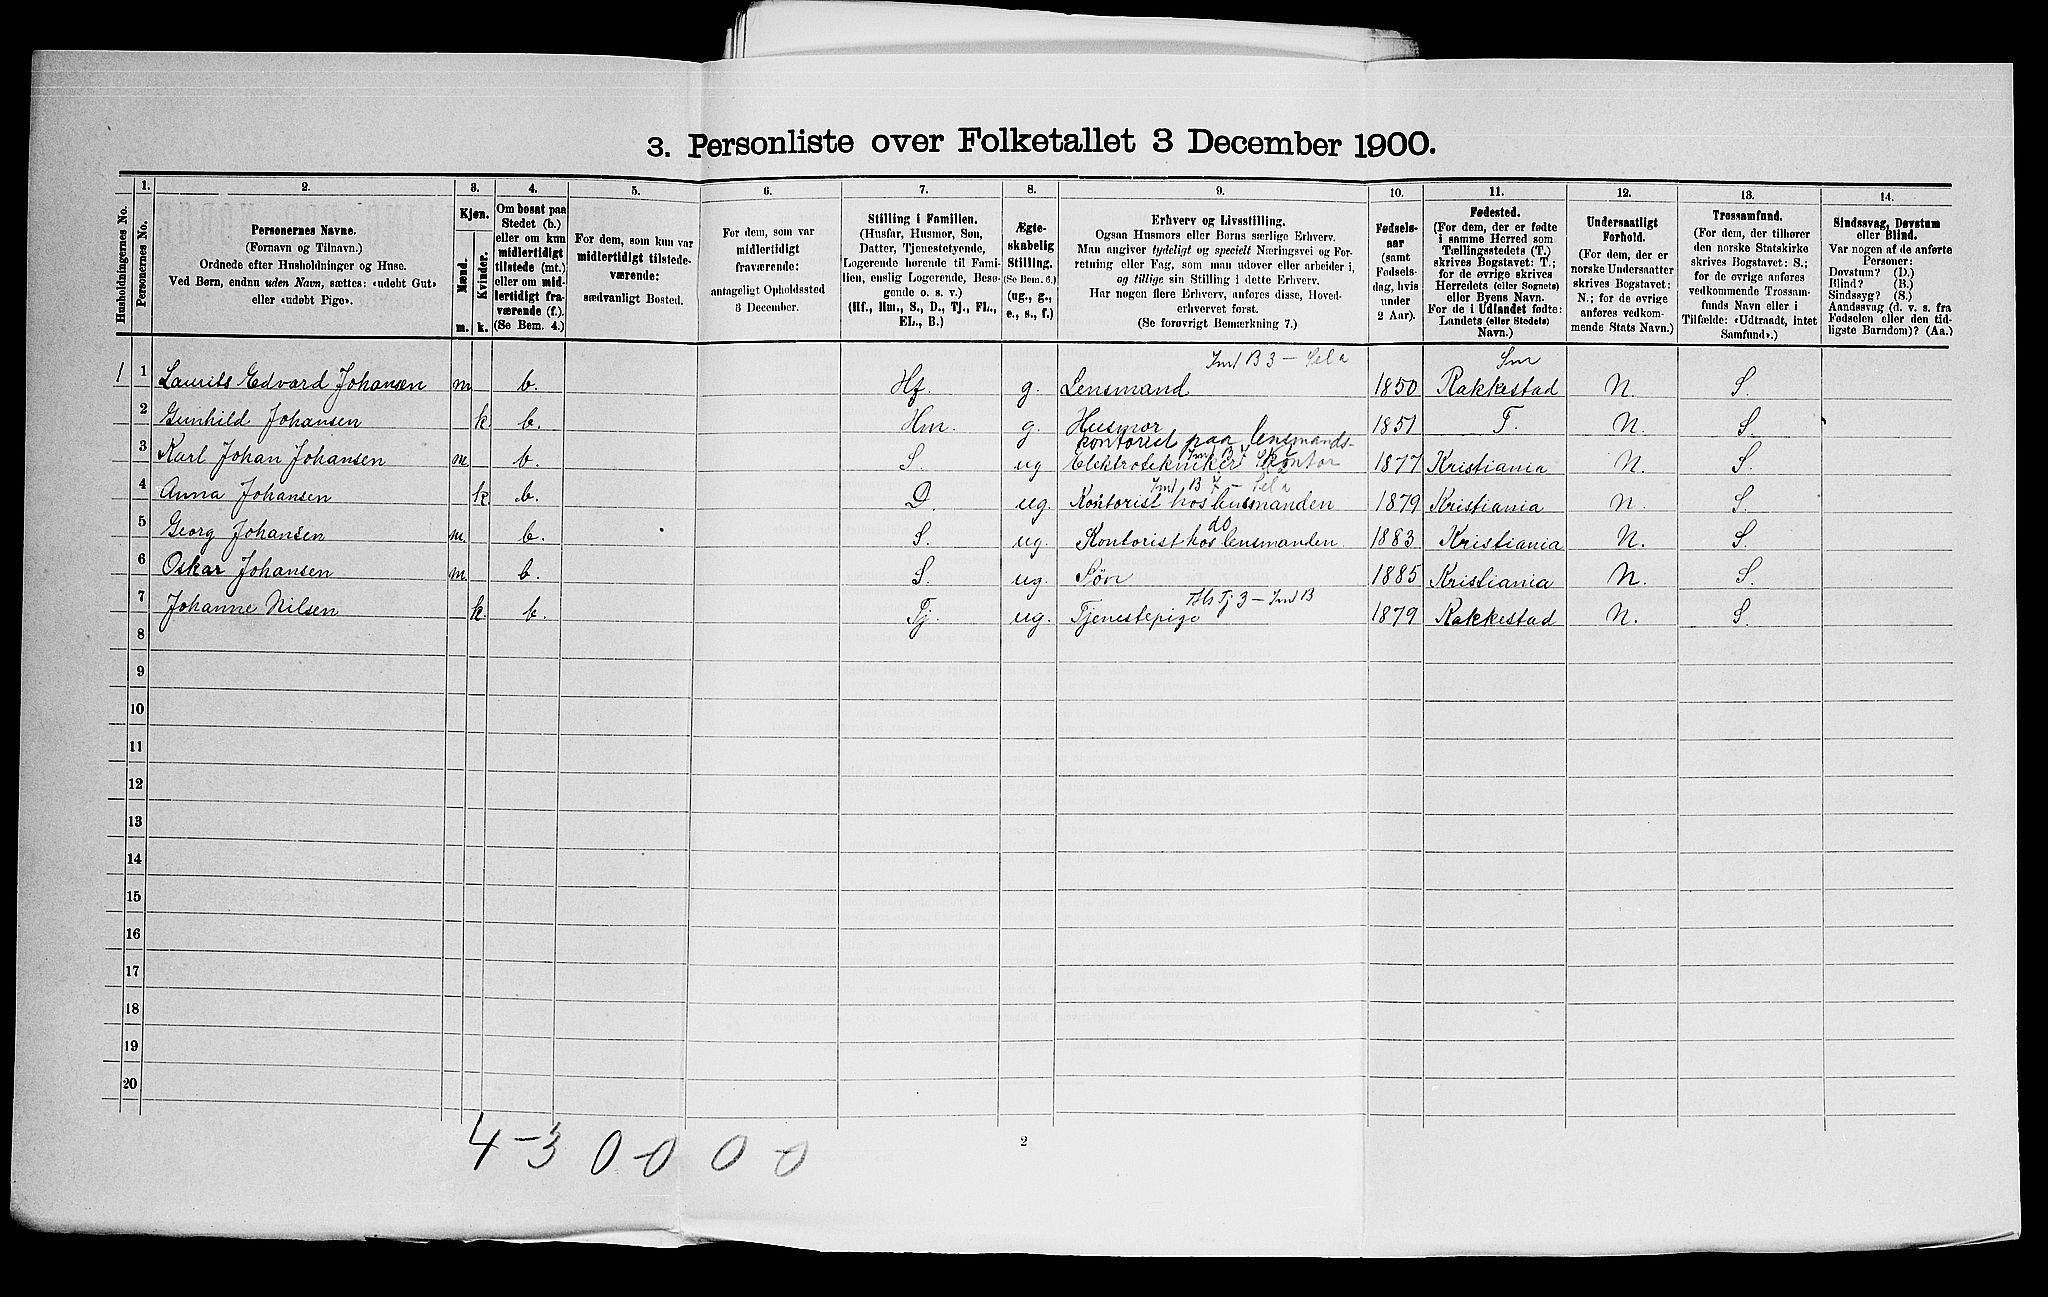 3. Personliste over Folketallet 3 December 1900.
Husholdningernes No.
1.
Personernes No.
2.
Personernes Navne.
(Fornavn og Tilnavn.)
Ordnede efter Husholdninger og Huse.
Ved Børn, endnu uden Navn, sættes: «udøbt Gut»
eller «udøbt Pige».
3.
Kjøn.
Mænd.
Kvinder.
m. k.
4.
Om bosat paa
Stedet (b.)
eller om kun
midlertidigt
tilstede (mt.)
eller om mid-
lertidigt fra-
værende (f.).
(Se Bem. 4.)
5.
For dem, som kun var
midlertidigt tilstede-
værende:
sædvanligt Bosted.
6.
For dem, som var
midlertidigt
fraværende:
antageligt Opholdssted
3 December.
7.
Stilling i Familien.
(Husfar, Husmor, Søn,
Datter, Tjenestetyende,
Logerende hørende til Fami-
lien, enslig Logerende, Besø-
gende o. s. v.)
(Hf., Hm., S., D., Tj., FL.,
EL., B.)
8.
Ægte-
skabelig
Stilling.
(Se Bem. 6.)
(ug., g.,
e., s., f.)
9.
Erhverv og Livsstilling.
Ogsaa Husmors eller Børns særlige Erhverv.
Man angiver tydeligt og specielt Næringsvei og For-
retning eller Fag, som man udøver eller arbeider i,
og tillige sin Stilling i dette Erhverv.
Har nogen flere Erhverv, anføres disse, Hoved-
erhvervet først.
(Se forøvrigt Bemærkning 7.)
10.
Fødsels-
aar
(samt
Fødsels-
dag, hvis
under
2 Aar).
11.
Fødested.
(For dem, der er fødte
i samme Herred som
Tællingsstedets (T.)
skrives Bogstavet: T.;
for de øvrige skrives
Herredets (eller Sognets)
eller Byens Navn.
For de i Udlandet fødte:
Landets (eller Stedets)
Navn.)
12.
Undersaatligt
Forhold.
(For dem, der er
norske Undersaatter
skrives Bogstavet:
N.; for de øvrige
anføres vedkom-
mende Stats Navn.)
13.
Trossamfund.
(For dem, der tilhører
den norske Statskirke
skrives Bogstavet: S.;
for de øvrige anføres
vedkommende Trossam-
funds Navn eller i
Tilfælde: «Udtraadt, intet
Samfund».)
14.
Sindssvag, Døvstum
eller Blind.
Var nogen af de anførte
Personer:
Døvstum? (D.)
Blind? (B.)
Sindssyg? (S.)
Aandssvag (d. v. s. fra
Fødselen eller den tid-
ligste Barndom)? (Aa.)
Ind B 3 – Sela Sm
1 1 Laurits Edvard Johansen m b. Hf. g. Lensmand 1850 Rakkestad N. S.
2 Gunhild Johansen k b. Hm. g. Husmor 1851 T. N. S.
kontorist paa lensmands-
3 Karl Johan Johansen m b. S. ug Elektrotekniker kontor 1877 Kristiania N. S.
Ind. B 7 – Sela
4 Anna Johansen k b. D. ug. Kontorist hos lensmanden 1879 Kristiania N. S.
do
5 Georg Johansen m. b. S. ug. Kontorist hos lensmanden 1883 Kristiania N. S.
6 Oskar Johansen m. b. S. ug. Søn 1885 Kristiania N. S.
Tj 3 – Ind B
7 Johanne Nilsen k b. Tj. ug. Tjenestepige 1879 Rakkestad N. S.
8
9
10
11
12
13
14
15
16
17
18
19
20
4 – 3 0 – 0 0 – 0
2